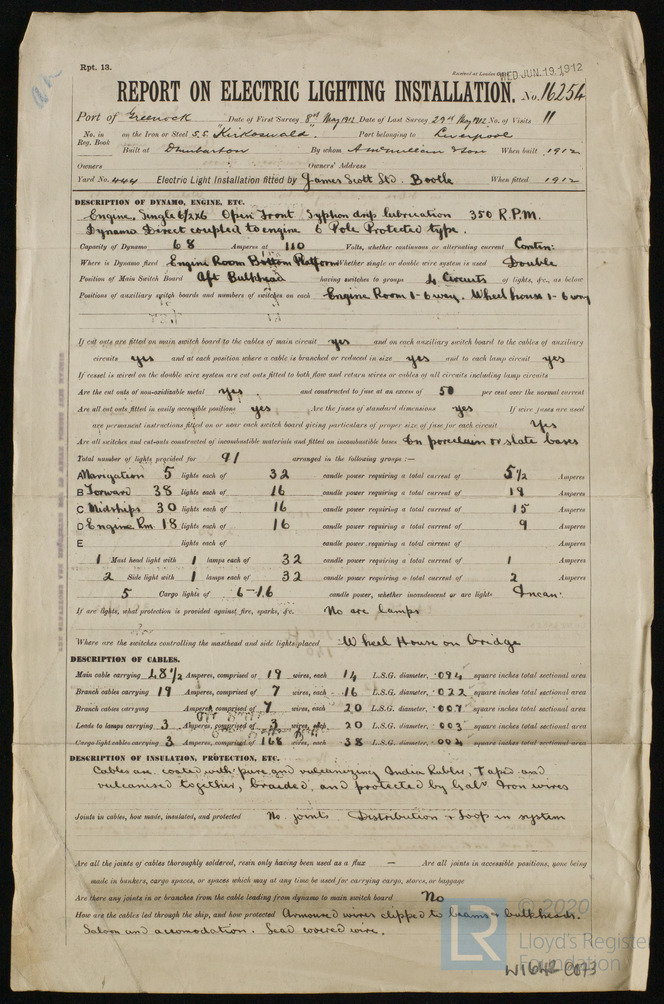 Rpt. 13.
Received at London Office WED. JUN. 19. 1912
REPORT ON ELECTRIC LIGHTING INSTALLATION. No. 16254
Port of Greenock Date of First Survey 8th May 1912 Date of Last Survey 29th May 1912 No. of Visits 11
No. in Reg. Book on the Iron or Steel S.S. "Kirkoswald" Port belonging to Liverpool
Built at Dumbarton By whom A McMillan & Son When built 1912
Owners Owners' Address
Yard No. 444 Electric Light Installation fitted by James Scott Ltd. Bootle When fitted 1912
DESCRIPTION OF DYNAMO, ENGINE, ETC.
Engine, Single 6½x6 Open Front Syphon drip lubrication 350 R.P.M.
Dynamo Direct coupled to engine 6 Pole Protected type.
Capacity of Dynamo 68 Amperes at 110 Volts, whether continuous or alternating current Contin:
Where is Dynamo fixed Engine Room Bottom Platform Whether single or double wire system is used Double
Position of Main Switch Board Aft Bulkhead having switches to groups 4 Circuits of lights, &c., as below
Positions of auxiliary switch boards and numbers of switches on each Engine Room 1-6 way. Wheel house 1-6 way
If cut outs are fitted on main switch board to the cables of main circuit yes and on each auxiliary switch board to the cables of auxiliary
circuits yes and at each position where a cable is branched or reduced in size yes and to each lamp circuit yes
If vessel is wired on the double wire system are cut outs fitted to both flow and return wires or cables of all circuits including lamp circuits
Are the cut outs of non-oxidizable metal yes and constructed to fuse at an excess of 50 per cent over the normal current
Are all cut outs fitted in easily accessible positions yes Are the fuses of standard dimensions yes If wire fuses are used
are permanent instructions fitted on or near each switch board giving particulars of proper size of fuse for each circuit Yes
Are all switches and cut-outs constructed of incombustible materials and fitted on incombustible bases On porcelain or slate bases
Total number of lights provided for 91 arranged in the following groups :—
A Navigation 5 lights each of 32 candle power requiring a total current of 5½ Amperes
B Forward 38 lights each of 16 candle power requiring a total current of 19 Amperes
C Midships 30 lights each of 16 candle power requiring a total current of 15 Amperes
D Engine Rm 18 lights each of 16 candle power requiring a total current of 9 Amperes
E lights each of candle power requiring a total current of Amperes
1 Mast head light with 1 lamps each of 32 candle power requiring a total current of 1 Amperes
2 Side light with 1 lamps each of 32 candle power requiring a total current of 2 Amperes
5 Cargo lights of 6-16 candle power, whether incandescent or arc lights Incan:
If arc lights, what protection is provided against fire, sparks, &c. No arc lamps
Where are the switches controlling the masthead and side lights placed Wheel House on bridge
DESCRIPTION OF CABLES.
Main cable carrying 48½ Amperes, comprised of 19 wires, each 14 L.S.G. diameter, .094 square inches total sectional area
Branch cables carrying 19 Amperes, comprised of 7 wires, each 16 L.S.G. diameter, .022 square inches total sectional area
Branch cables carrying Amperes, comprised of 7 wires, each 20 L.S.G. diameter, .007 square inches total sectional area
Leads to lamps carrying 3 Amperes, comprised of 3 wires, each 20 L.S.G. diameter, .003 square inches total sectional area
Cargo light cables carrying 3 Amperes, comprised of 168 wires, each 38 L.S.G. diameter, .004 square inches total sectional area
DESCRIPTION OF INSULATION, PROTECTION, ETC.
Cables are coated with pure and vulcanizing India Rubber, Taped and
vulcanised together, braided, and protected by Galv Iron wires
Joints in cables, how made, insulated, and protected No joints. Distribution & Loop in system
Are all the joints of cables thoroughly soldered, resin only having been used as a flux — Are all joints in accessible positions, none being
made in bunkers, cargo spaces, or spaces which may at any time be used for carrying cargo, stores, or baggage
Are there any joints in or branches from the cable leading from dynamo to main switch board No
How are the cables led through the ship, and how protected Armoured wires clipped to beams & bulkheads.
Saloon and accomodation. Lead covered wire.
© 2020
LR Lloyd's Register Foundation
W1642 0073